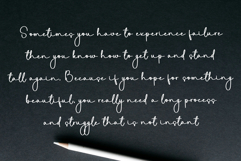 Sometimes you have to experience failure
then you know how to get up and stand
tall again. Because if you hope for something
beautiful, you really need a long process
and struggle that is not instant